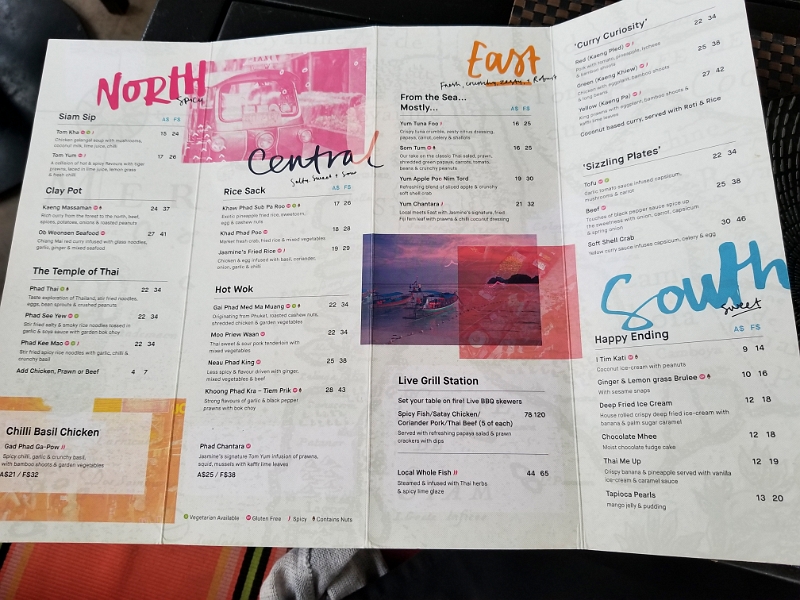 NORTH
spicy
Siam Sip
A$ F$
Tom Kha 15 24
Chicken galangal soup with mushrooms,
coconut milk, lime juice, chilli
Tom Yum 17 26
A collision of hot & spicy flavours with tiger
prawns, laced in lime juice, lemon grass
& fresh chilli
Clay Pot
Kaeng Massaman 24 37
Rich curry from the forest to the north, beef,
spices, potatoes, onions & roasted peanuts
Ob Woonsen Seafood 27 41
Chiang Mai red curry infused with glass noodles,
garlic, ginger & mixed seafood
The Temple of Thai
Phad Thai 22 34
Taste exploration of Thailand, stir fried noodles,
eggs, bean sprouts & crushed peanuts
Phad See Yew 22 34
Stir fried salty & smoky rice noodles tossed in
garlic & soya sauce with garden bok choy
Phad Kee Mao 22 34
Stir fried spicy rice noodles with garlic, chilli &
crunchy basil
Add Chicken, Prawn or Beef 4 7
Chilli Basil Chicken
Gad Phad Ga-Pow
Spicy chilli, garlic & crunchy basil,
with bamboo shoots & garden vegetables
A$21 / F$32
Central
Salty Sweet + Sour
Rice Sack
A$ F$
Khaw Phad Sub Pa Roo 17 26
Exotic pineapple fried rice, sweetcorn,
egg & cashew nuts
Khad Phad Poo 18 28
Market fresh crab, fried rice & mixed vegetables
Jasmine's Fried Rice 19 29
Chicken & egg infused with basil, coriander,
onion, garlic & chilli
Hot Wok
Gai Phad Med Ma Muang 22 34
Originating from Phuket, roasted cashew nuts,
shredded chicken & garden vegetables
Moo Priew Waan 22 34
Thai sweet & sour pork tenderloin with
mixed vegetables
Neau Phad King 25 38
Less spicy & flavour driven with ginger,
mixed vegetables & beef
Khoong Phad Kra – Tiem Prik 28 43
Strong flavours of garlic & black pepper
prawns with bok choy
Phad Chantara
Jasmine's signature Tom Yum infusion of prawns,
squid, mussels with kaffir lime leaves
A$25 / F$38
Vegetarian Available Gluten Free Spicy Contains Nuts
East
Fresh, crunchy, zesty & Robust
From the Sea...
Mostly...
A$ F$
Yum Tuna Foo 16 25
Crispy tuna crumble, zesty citrus dressing,
papaya, carrot, celery & shallots
Som Tum 16 25
Our take on the classic Thai salad, prawn,
shredded green papaya, carrots, tomato,
beans & crunchy peanuts
Yum Apple Poo Nim Tord 19 30
Refreshing blend of sliced apple & crunchy
soft shell crab
Yum Chantara 21 32
Local meets East with Jasmine's signature, fried
Fiji fern leaf with prawns & chilli coconut dressing
Live Grill Station
Set your table on fire! Live BBQ skewers
Spicy Fish/Satay Chicken/ 78 120
Coriander Pork/Thai Beef (5 of each)
Served with refreshing papaya salad & prawn
crackers with dips
Local Whole Fish 44 65
Steamed & infused with Thai herbs
& spicy lime glaze
'Curry Curiosity'
Red (Kaeng Pled) 22 34
Pork with tomato, pineapple, lychees
& bamboo shoots
Green (Kaeng Khiew) 25 38
Chicken with eggplant, bamboo shoots
& long beans
Yellow (Kaeng Pa) 27 42
King prawns with eggplant, bamboo shoots &
kaffir lime leaves
Coconut based curry, served with Roti & Rice
'Sizzling Plates'
Tofu 22 34
Garlic tomato sauce infused capsicum,
mushrooms & carrot
Beef 25 38
Touches of black pepper sauce spice up
the sweetness with onion, carrot, capsicum
& spring onion
Soft Shell Crab 30 46
Yellow curry sauce infused capsicum, celery & egg
South
sweet
Happy Ending
A$ F$
I Tim Kati 9 14
Coconut ice-cream with peanuts
Ginger & Lemon grass Brulee 10 16
With sesame snaps
Deep Fried Ice Cream 12 18
House rolled crispy deep fried ice-cream with
banana & palm sugar caramel
Chocolate Mhee 12 18
Moist chocolate fudge cake
Thai Me Up 12 19
Crispy banana & pineapple served with vanilla
ice-cream & caramel sauce
Tapioca Pearls 13 20
mango jelly & pudding